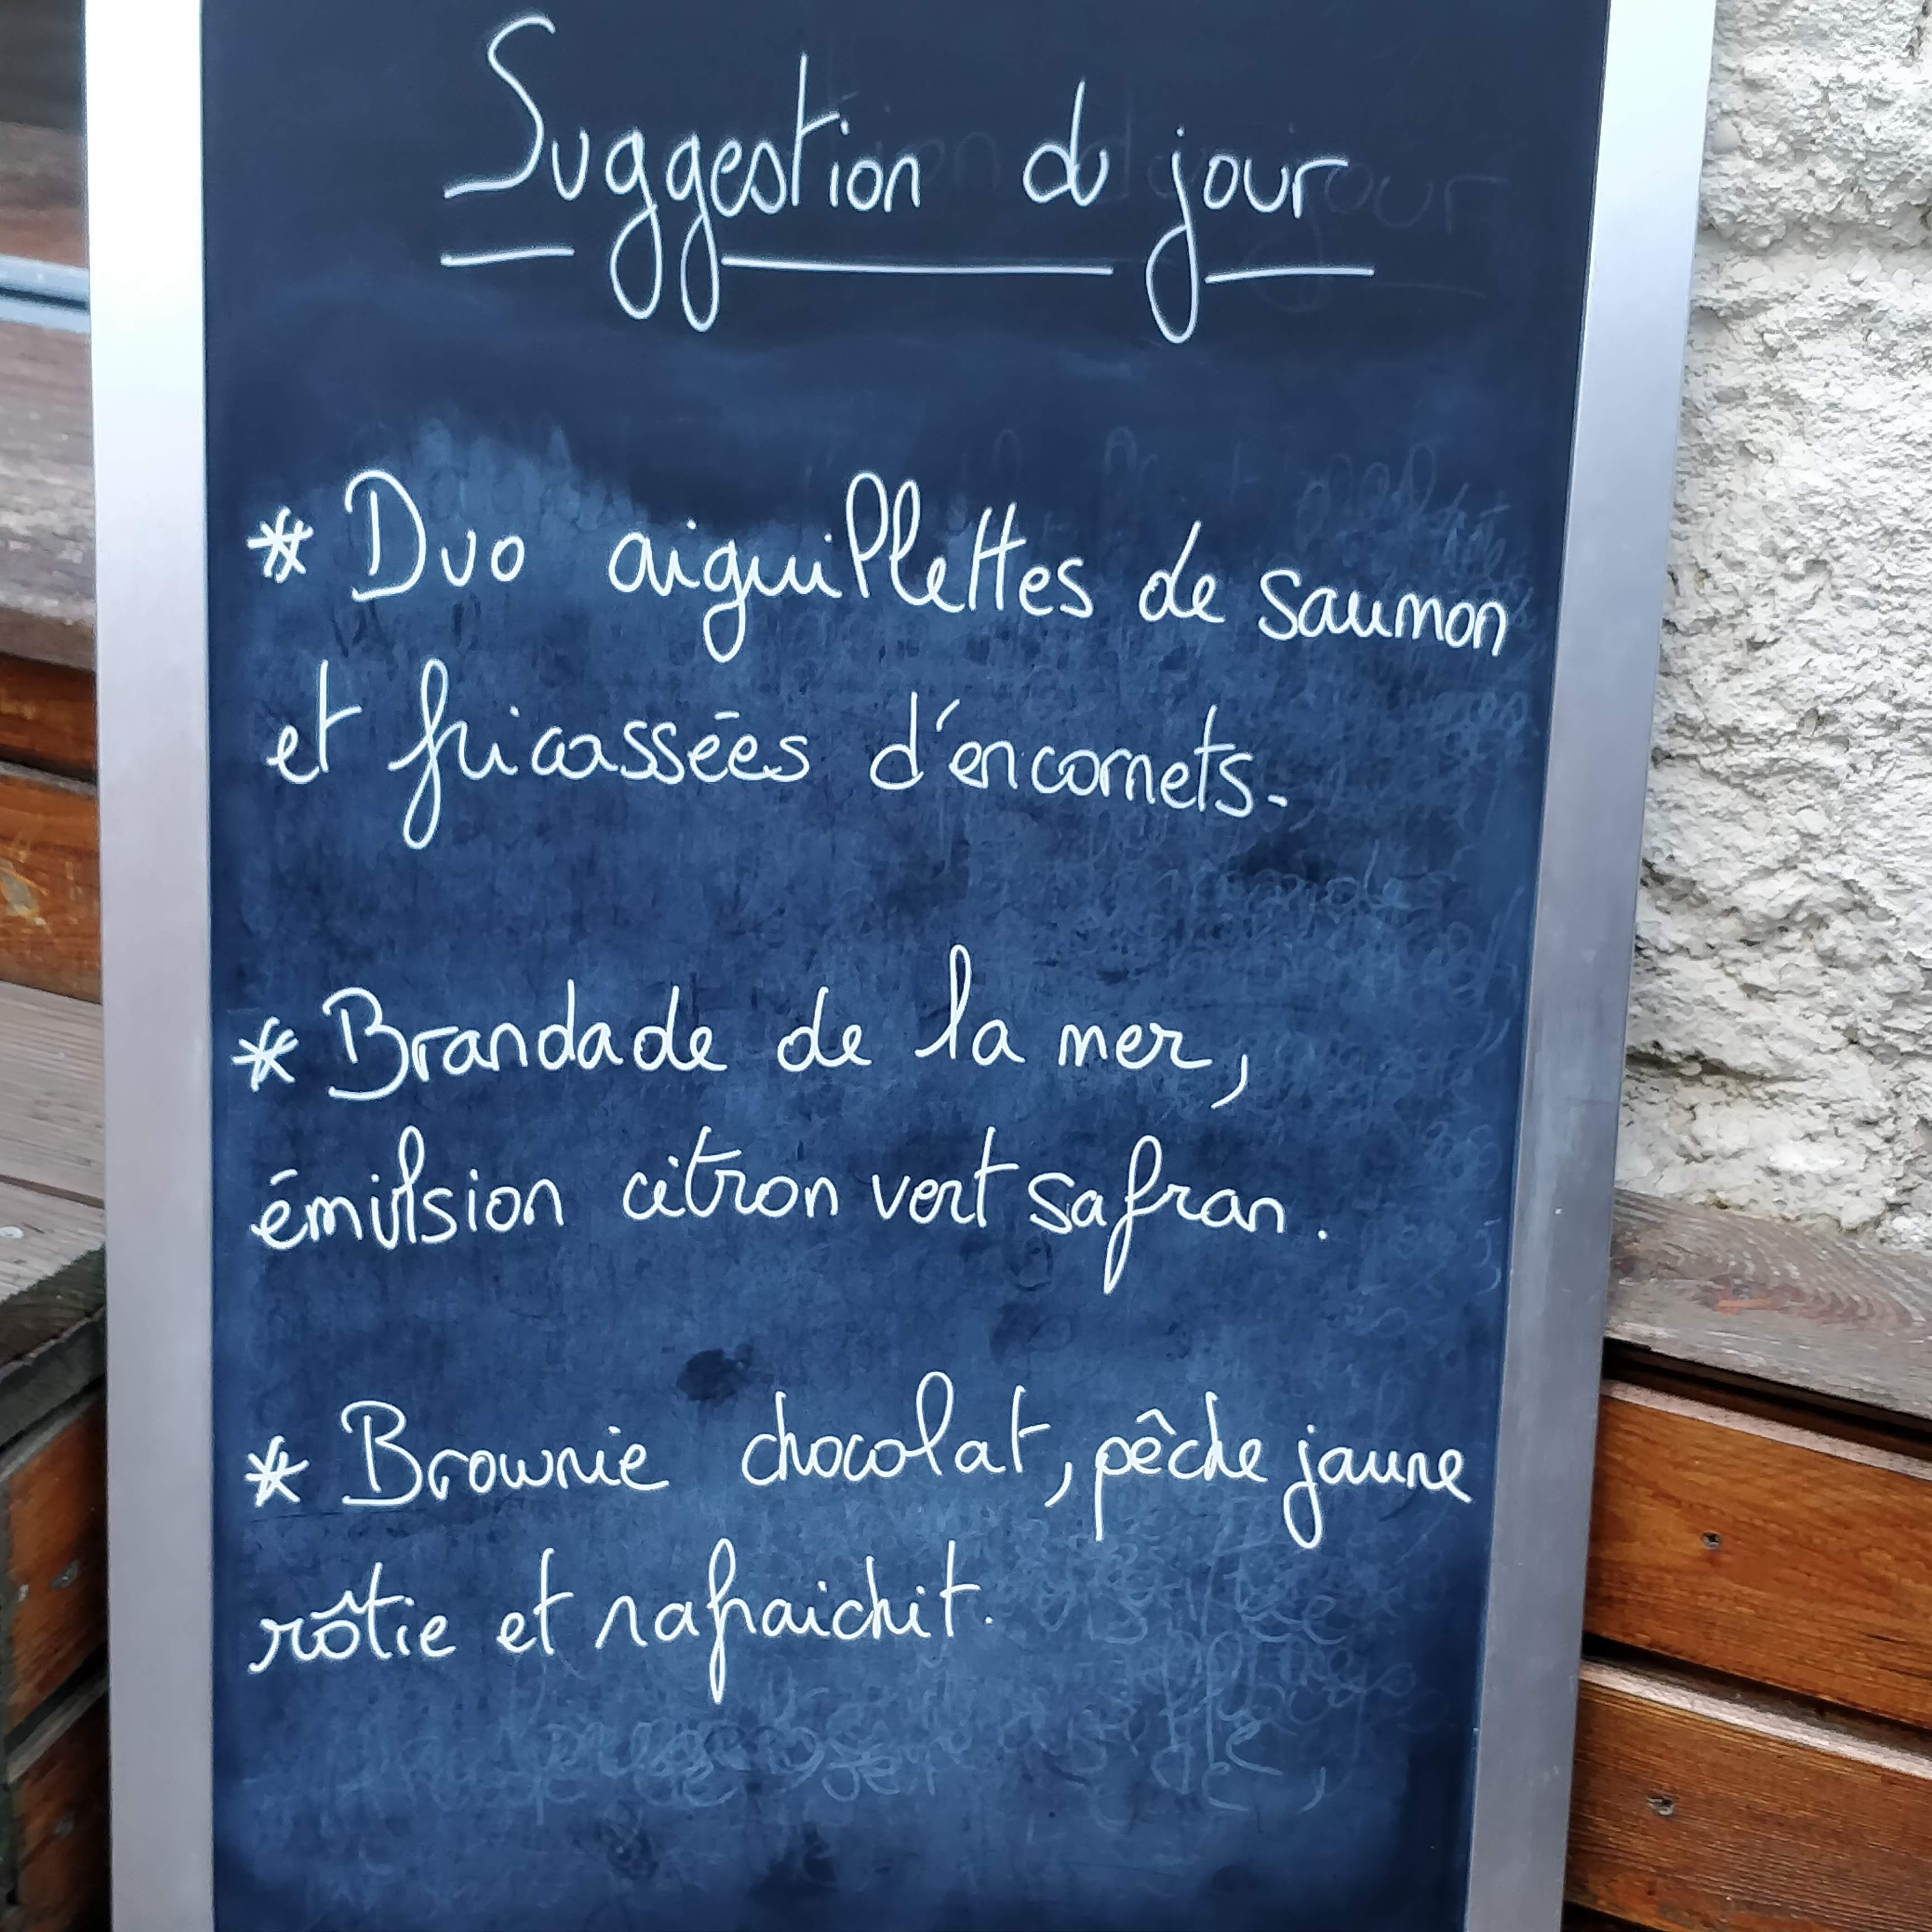 Suggestion du jour
* Duo aiguillettes de saumon
et fricassées d'encornets.
* Brandade de la mer,
émulsion citron vert safran.
* Brownie chocolat, pêche jaune
rôtie et rafraichit.